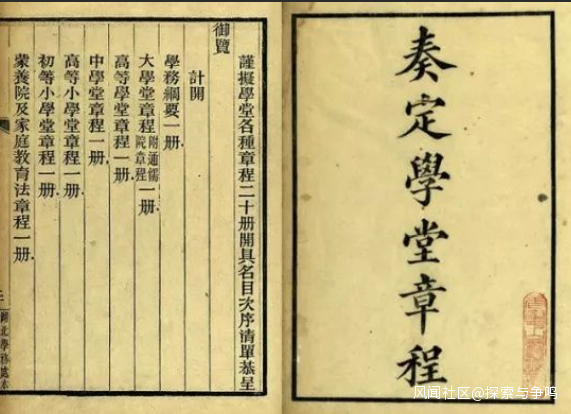 奏定學堂章程
謹擬學堂各種章程二十册開具名目次序清單恭呈
御覽
計開
學務綱要一册
大學堂章程附通儒院章程一册
高等學堂章程一册
中學堂章程一册
高等小學堂章程一册
初等小學堂章程一册
蒙養院及家庭教育法章程一册
湖北學務處本
风闻社区@探索与争鸣